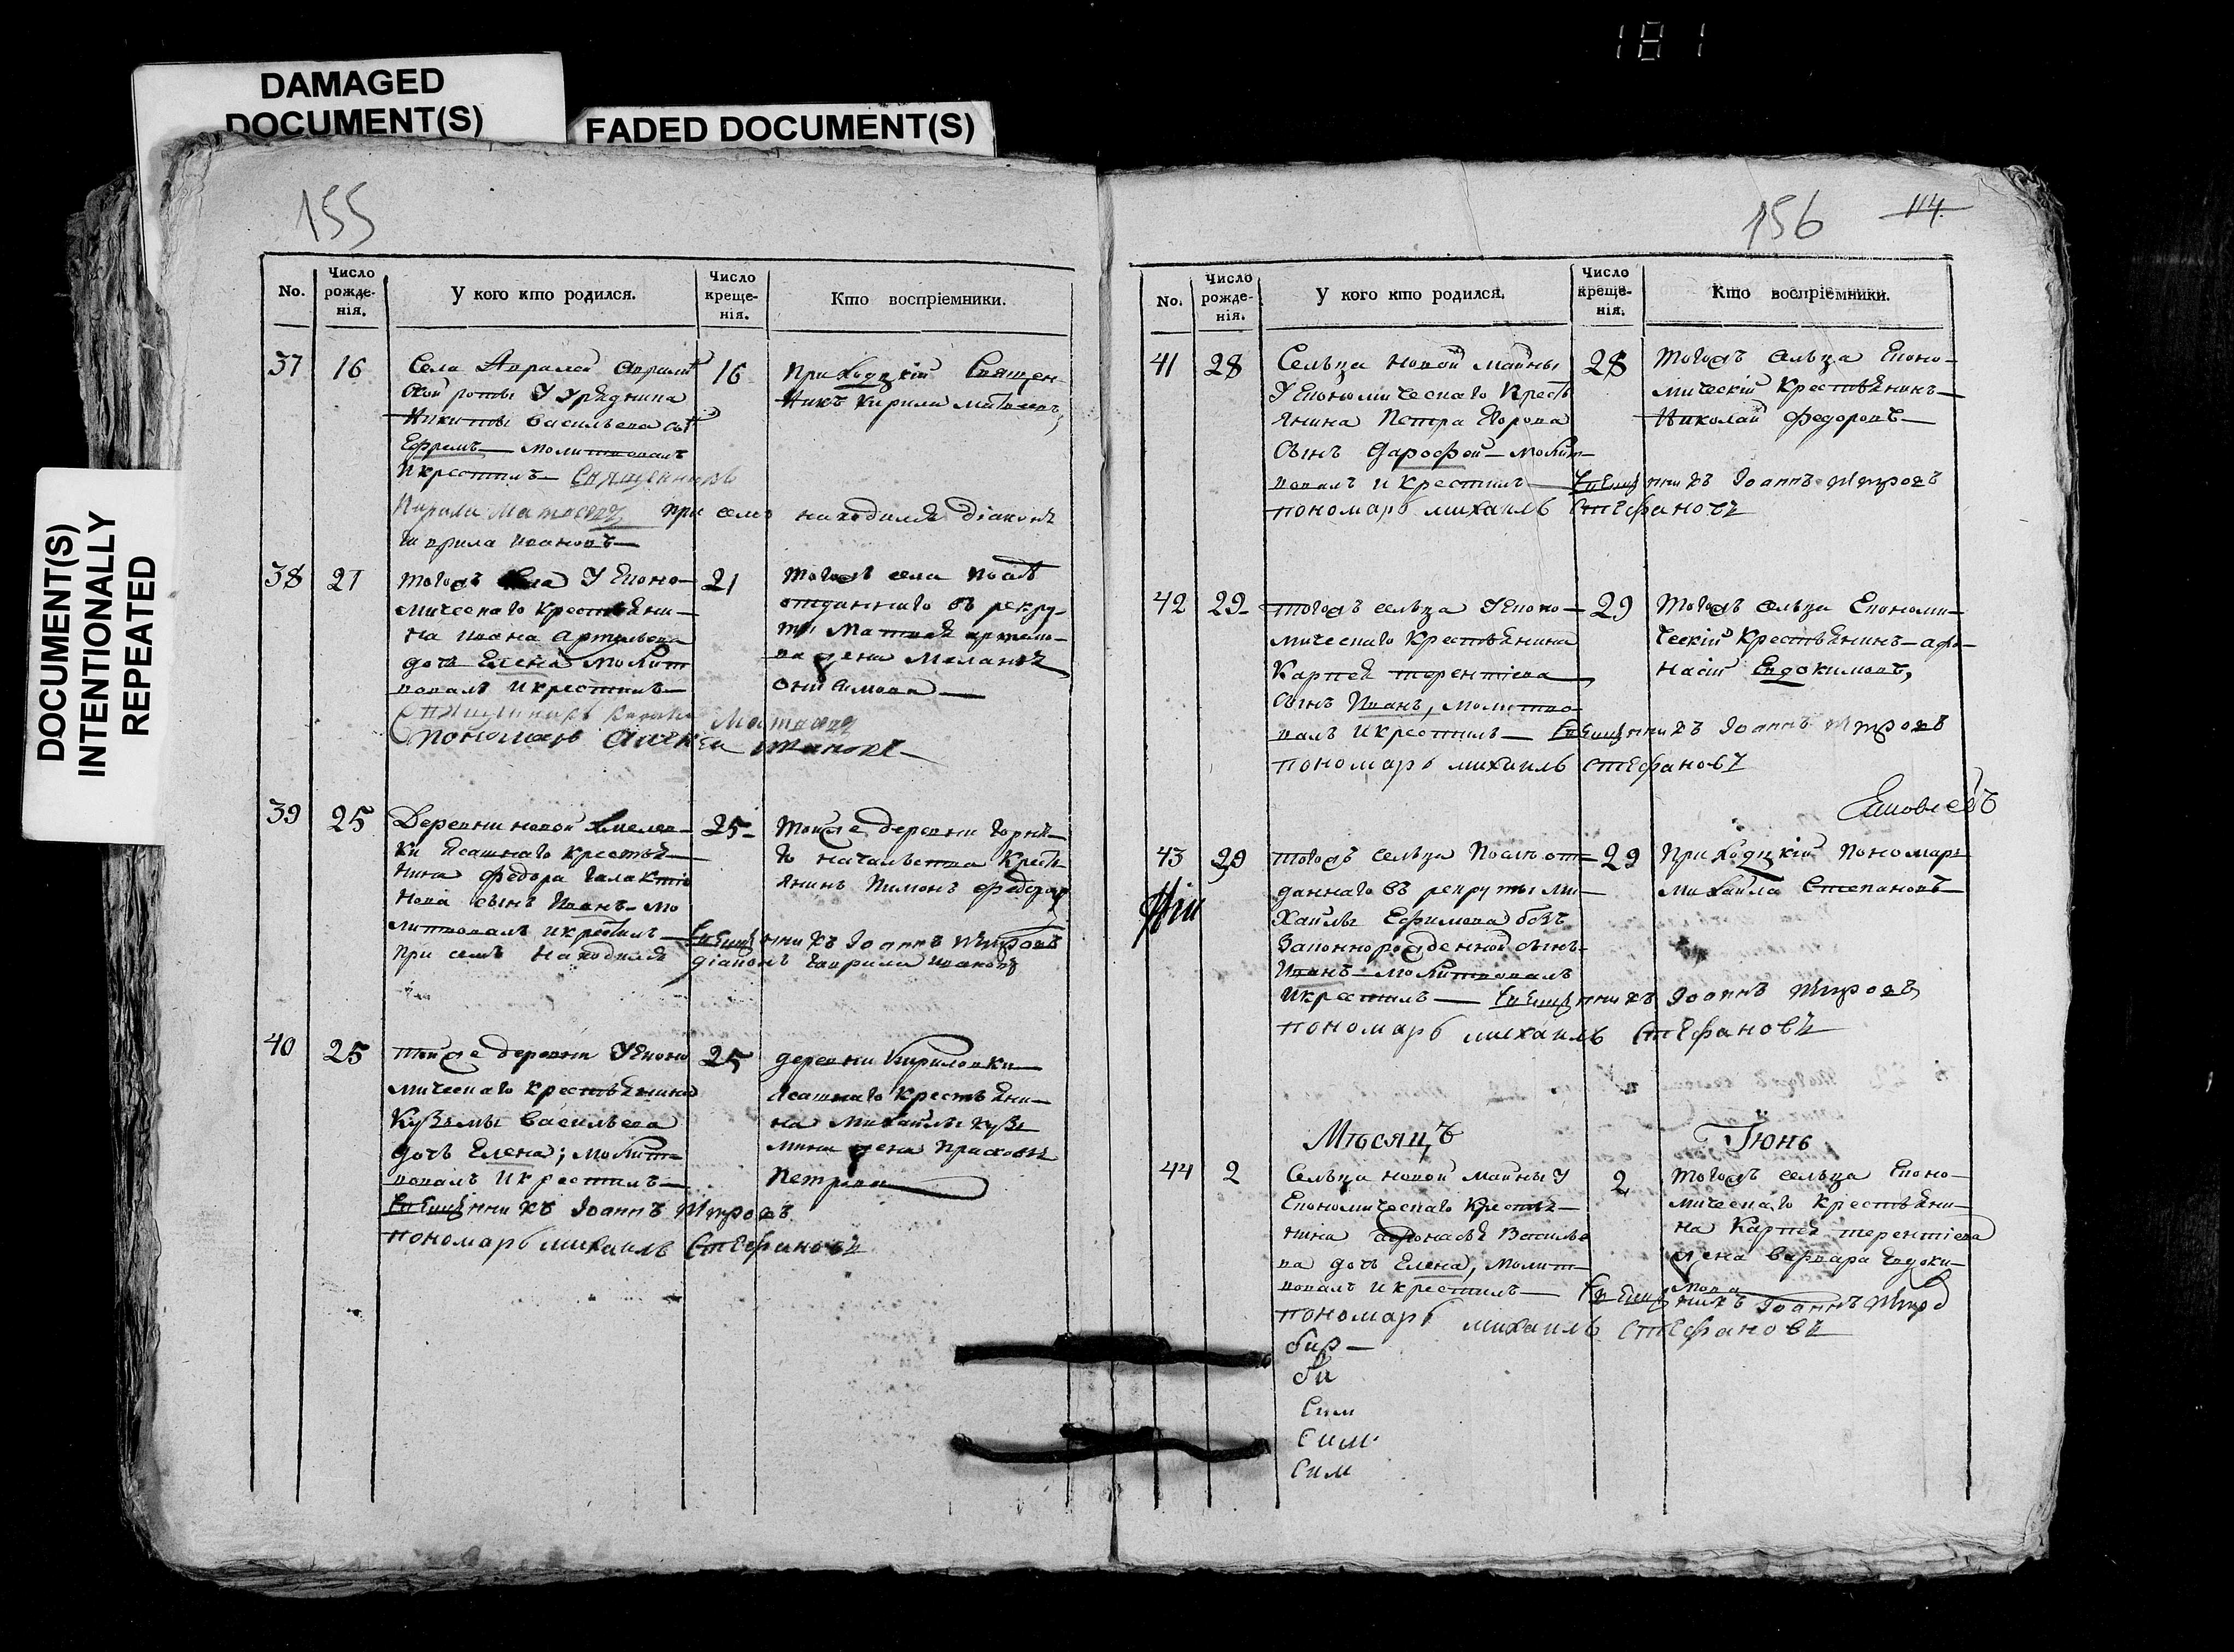 181
DAMAGED
DOCUMENT(S)
FADED DOCUMENT(S)
DOCUMENT(S)
INTENTIONALLY
REPEATED
155
No.
Число
рожде-
нія.
У кого кто родился.
Число
креще-
нія.
Кто воспріемники.
37
16
Села
роты У урядника
Никиты Васильева
Ефремъ — молитвовалъ
и крестилъ — Священникъ
при семъ находился діаконъ
Гаврила Ивановъ —
16
Приходцкій Священ-
никъ Кирила
38
21
тогожъ села У Еконо-
мическаго крестьяни-
на Ивана Артемьева
дочь Елена молит
вовалъ и крестилъ —
Священникъ
Пономарь
21
тогожъ села посл
отданнаго въ рекру-
ты Матвея артемь-
ва жена Меланья
39
25
Деревни новой Хмелев-
ки Ясашнаго крестья-
нина федора галактіо
нова сынъ Иванъ — мо
литвовалъ и крестилъ — Священникъ Іоаннъ Петровъ
при семъ находился діаконъ Гаврила Ивановъ
25
тойже деревни горня-
го начальства Кресть
янинъ Пимонъ федоров
40
25
тойже деревни У Еконо
мическаго крестьянина
Кузьмы Васильева
дочь Елена; молит-
вовалъ и крестилъ —
Священникъ Іоаннъ Петровъ
пономарь михаилъ Стефановъ
25
деревни Кириловки
Ясашнаго крестьяни-
на Михайлы кузь
мина жена Прасковья
Петрова
156
114
No.
Число
рожде-
нія.
У кого кто родился.
Число
креще-
нія.
Кто воспріемники.
41
28
Сельца новой майны
У Економическаго Кресть
янина Петра Егорова
Сынъ Дарофей — молит-
вовалъ и крестилъ — Священникъ Іоаннъ Петровъ
пономарь михаилъ Стефановъ
28
тогожъ сельца Еконо-
мическій крестьянинъ —
Николай федоровъ —
42
29
тогожъ сельца У Еконо-
мическаго крестьянина
Карпея терентіева
сынъ Иванъ, молитво-
валъ и крестилъ — Священникъ Іоаннъ Петровъ
пономарь михаилъ Стефановъ
29
тогожъ сельца Економи-
ческій крестьянинъ — афо-
насій Евдокимовъ,
43
29
тогожъ сельца После от-
даннаго въ рекруты ми-
хайлы Ефимова
законнорожденной сынъ
Иванъ — молитвовалъ
и крестилъ — Священникъ Іоаннъ Петровъ
пономарь михаилъ Стефановъ
29
Приходцкій пономарь
михайла Степановъ —
Мѣсяцъ Іюнь
44
2
Сельца новой майны У
Економическаго крестья-
нина афонасья Василье
ва дочь Елена, молит-
вовалъ и крестилъ — Священникъ Іоаннъ Петро
пономарь михаилъ Стефановъ
2
тогожъ сельца Еконо-
мическаго крестьяни-
на Карпея терентіева
жена варвара Евдоки-
мова
сим
сим
сим